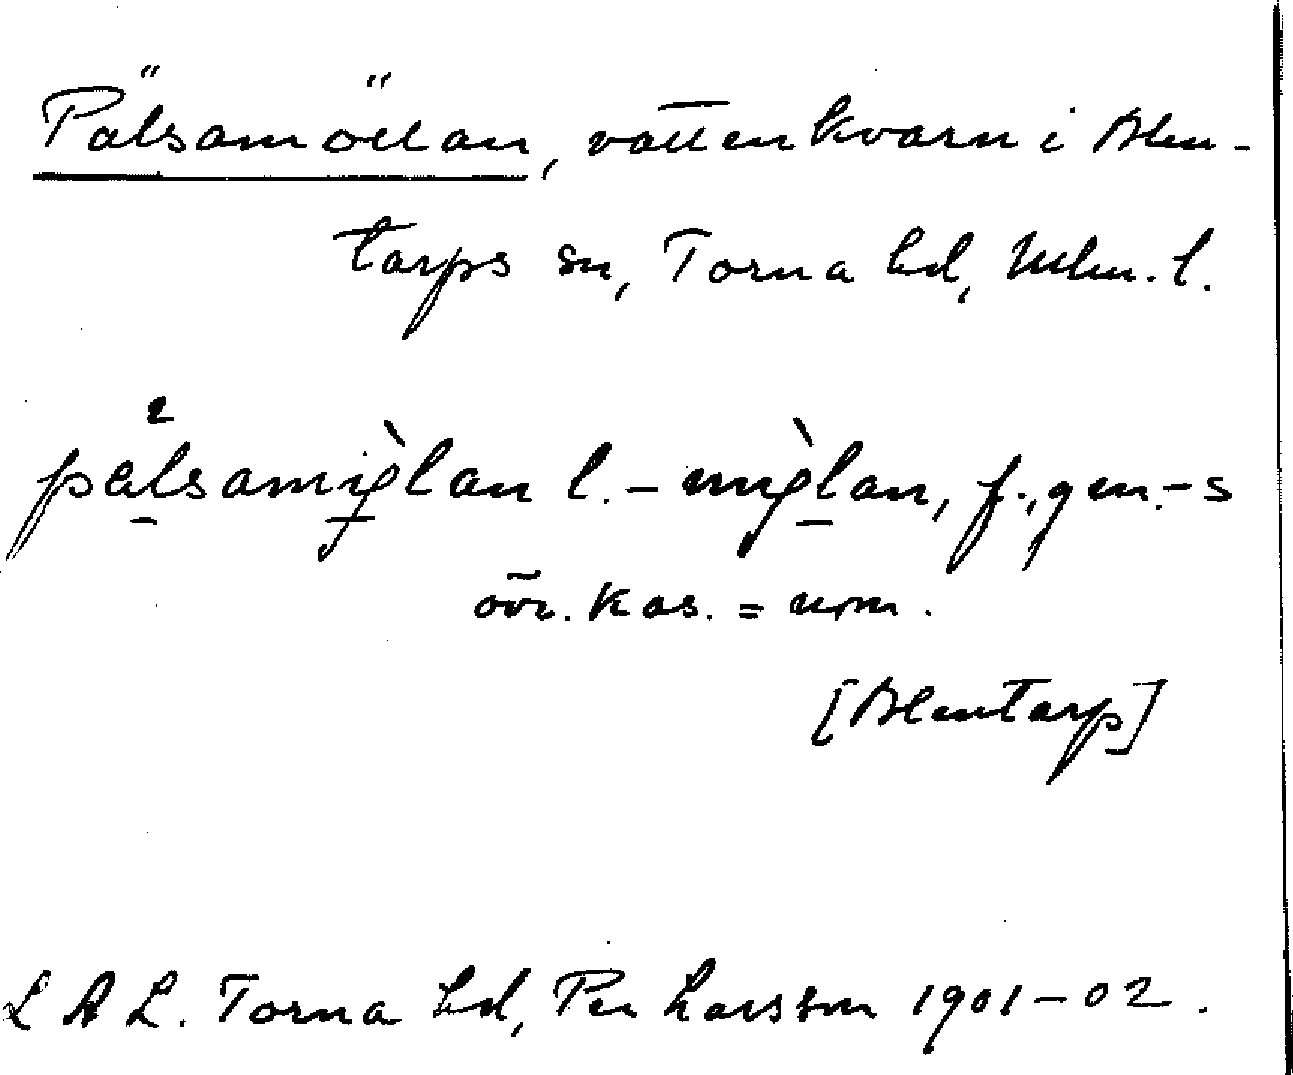 Pälsamöllan, vattenkvarn i Blen-
tarps sn, Torna hd, Mlm. l.
pälsamìɟlan l. -mìɟlan, f., gen. -s
övr. kas. = nom.
[Blentarp]
LAL. Torna hd, Per Larsson 1901-02.